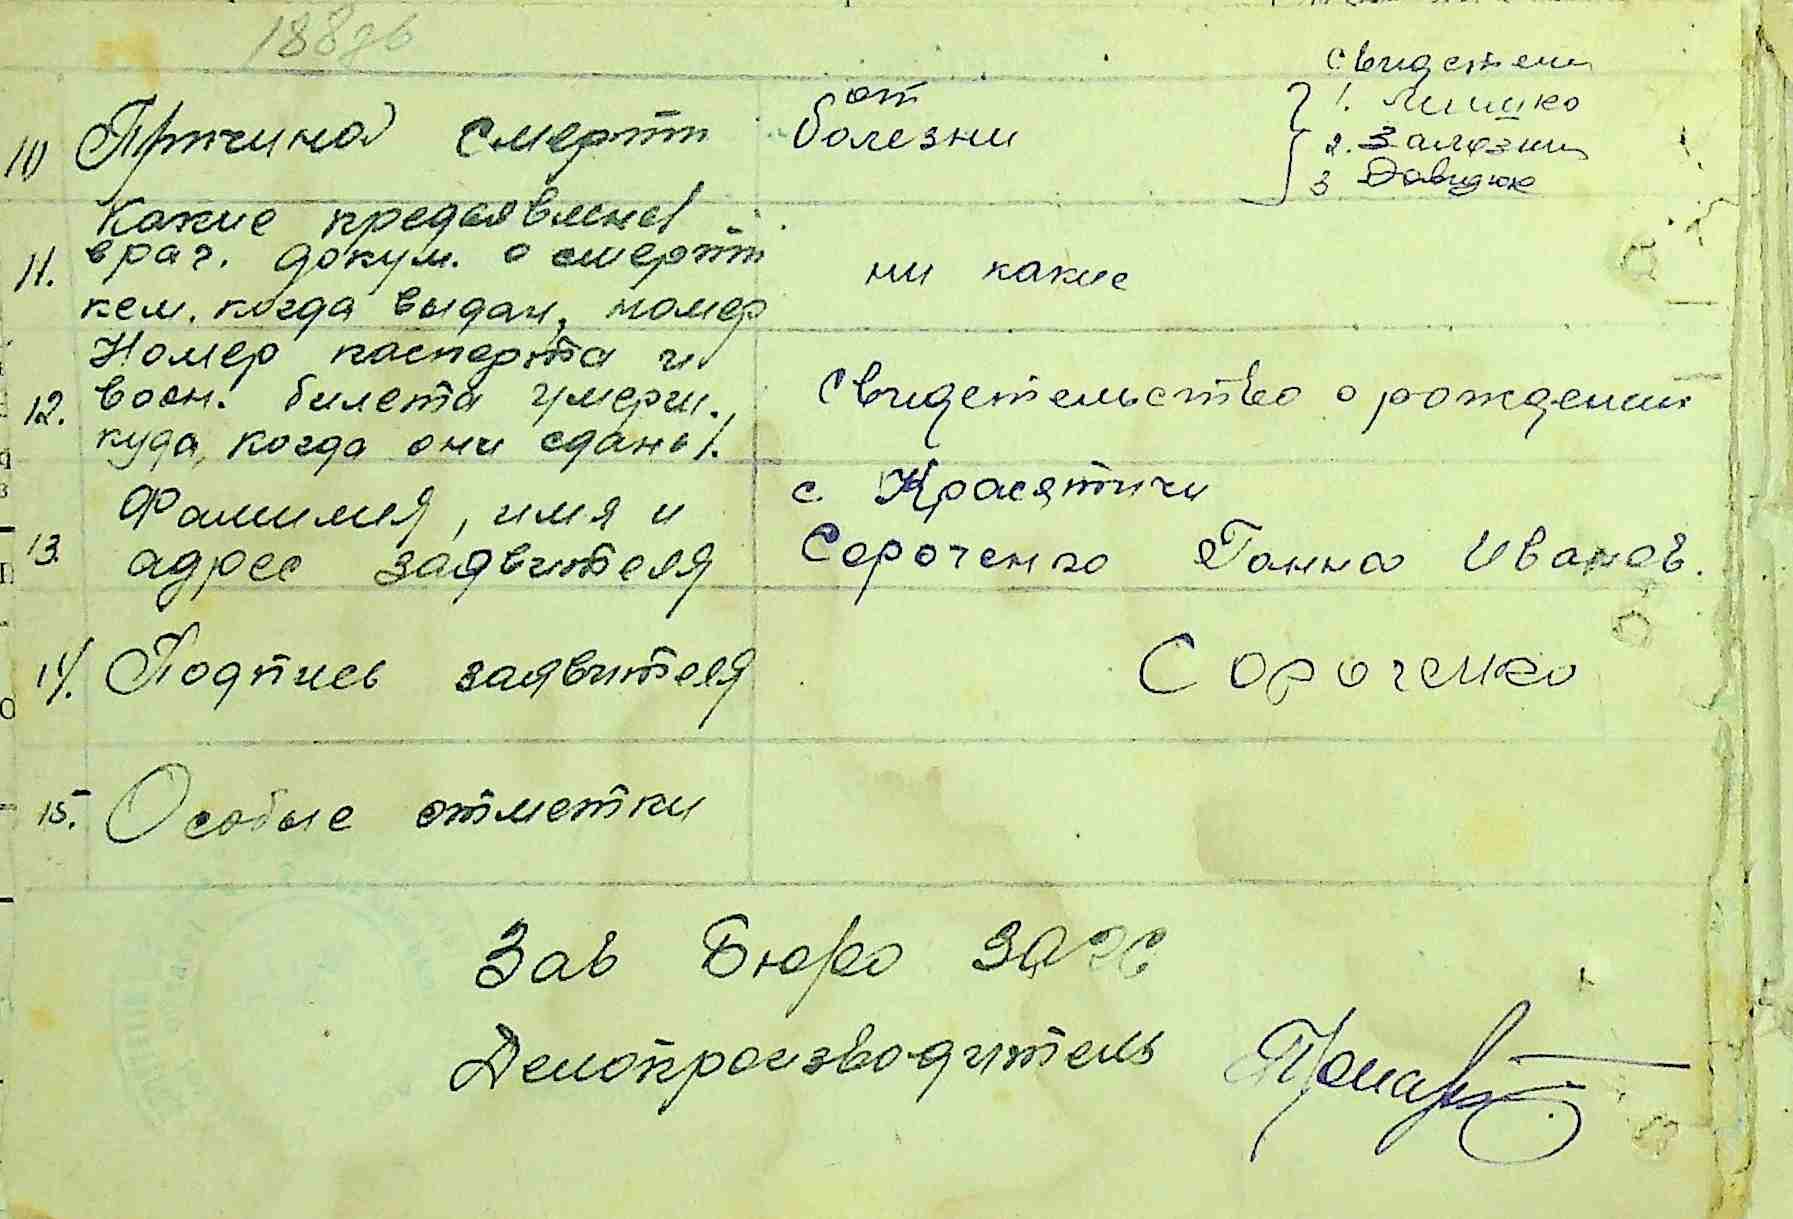 188зв
Свидетели
1. Мишко
2. Залозни
3 Давидюк
10 Причина смерти
от
болезни
Какие предъявлены
11. врач. докум. о смерти
кем. когда выдан, номер
ни какие
Номер паспорта и
12. воен. билета умерш.
куда, когда они сданы.
Свидетельство о рождении
Фамилия, имя и
13. адрес заявителя
с. Красятичи
Сороченко Ганна Иванов.
14. Подпись заявителя
Сороченко
15. Особые отметки
Зав Бюро ЗАГС
Делопроизводитель